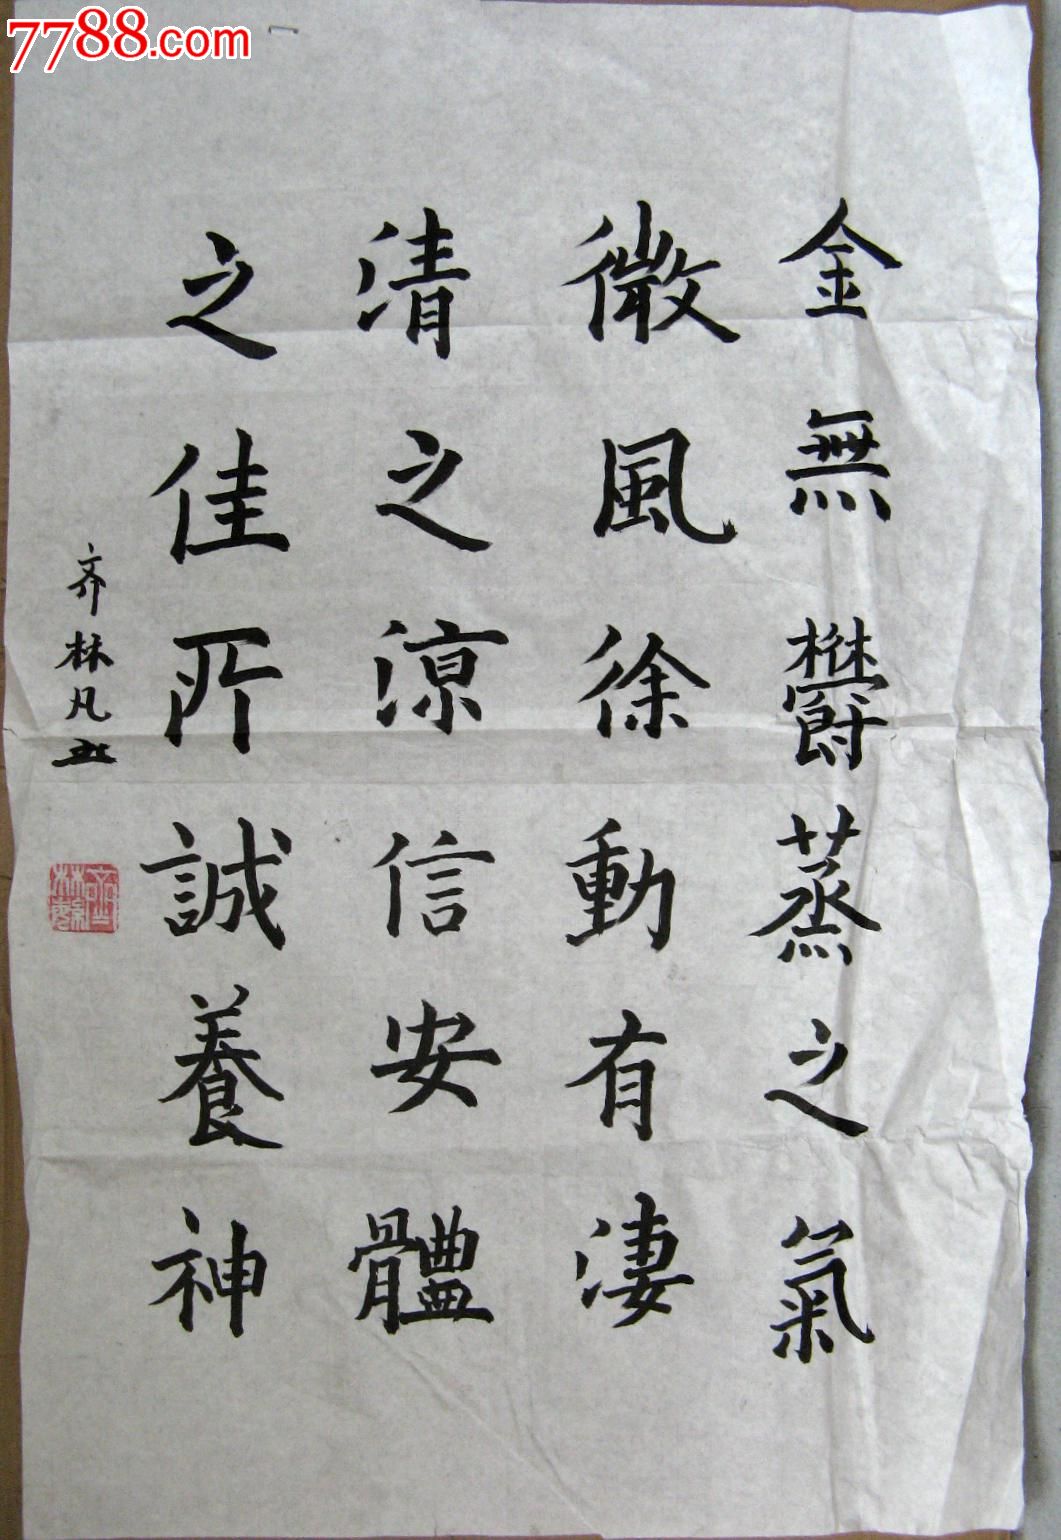 7788.com
金無欝蒸之氣
微風徐動有淒
清之涼信安體
之佳所誠養神
齐林凡书